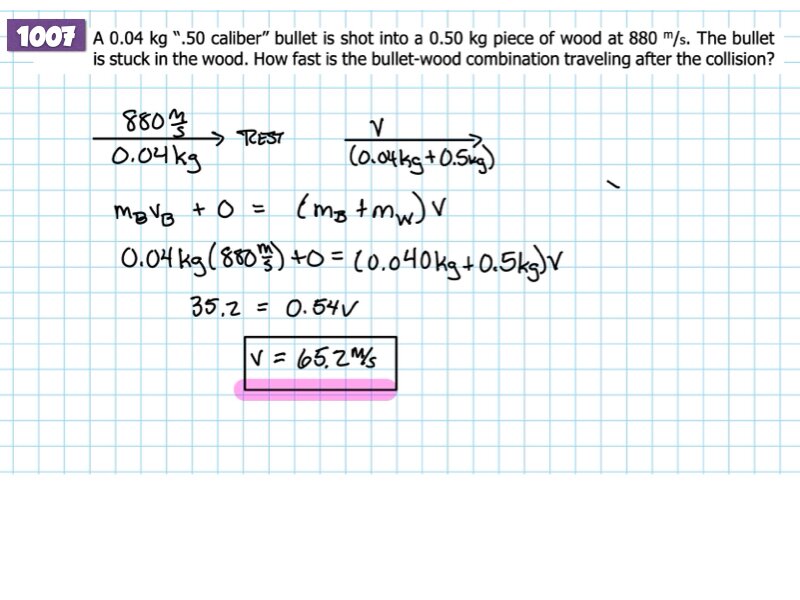 1007 A 0.04 kg ".50 caliber" bullet is shot into a 0.50 kg piece of wood at 880 m/s. The bullet
is stuck in the wood. How fast is the bullet-wood combination traveling after the collision?
880 m/s REST V
0.04 kg (0.04kg + 0.5kg)
mBVB + 0 = (mB + mW) V
0.04 kg (880 m/s) + 0 = (0.040kg + 0.5kg)V
35.2 = 0.54V
V = 65.2 m/s